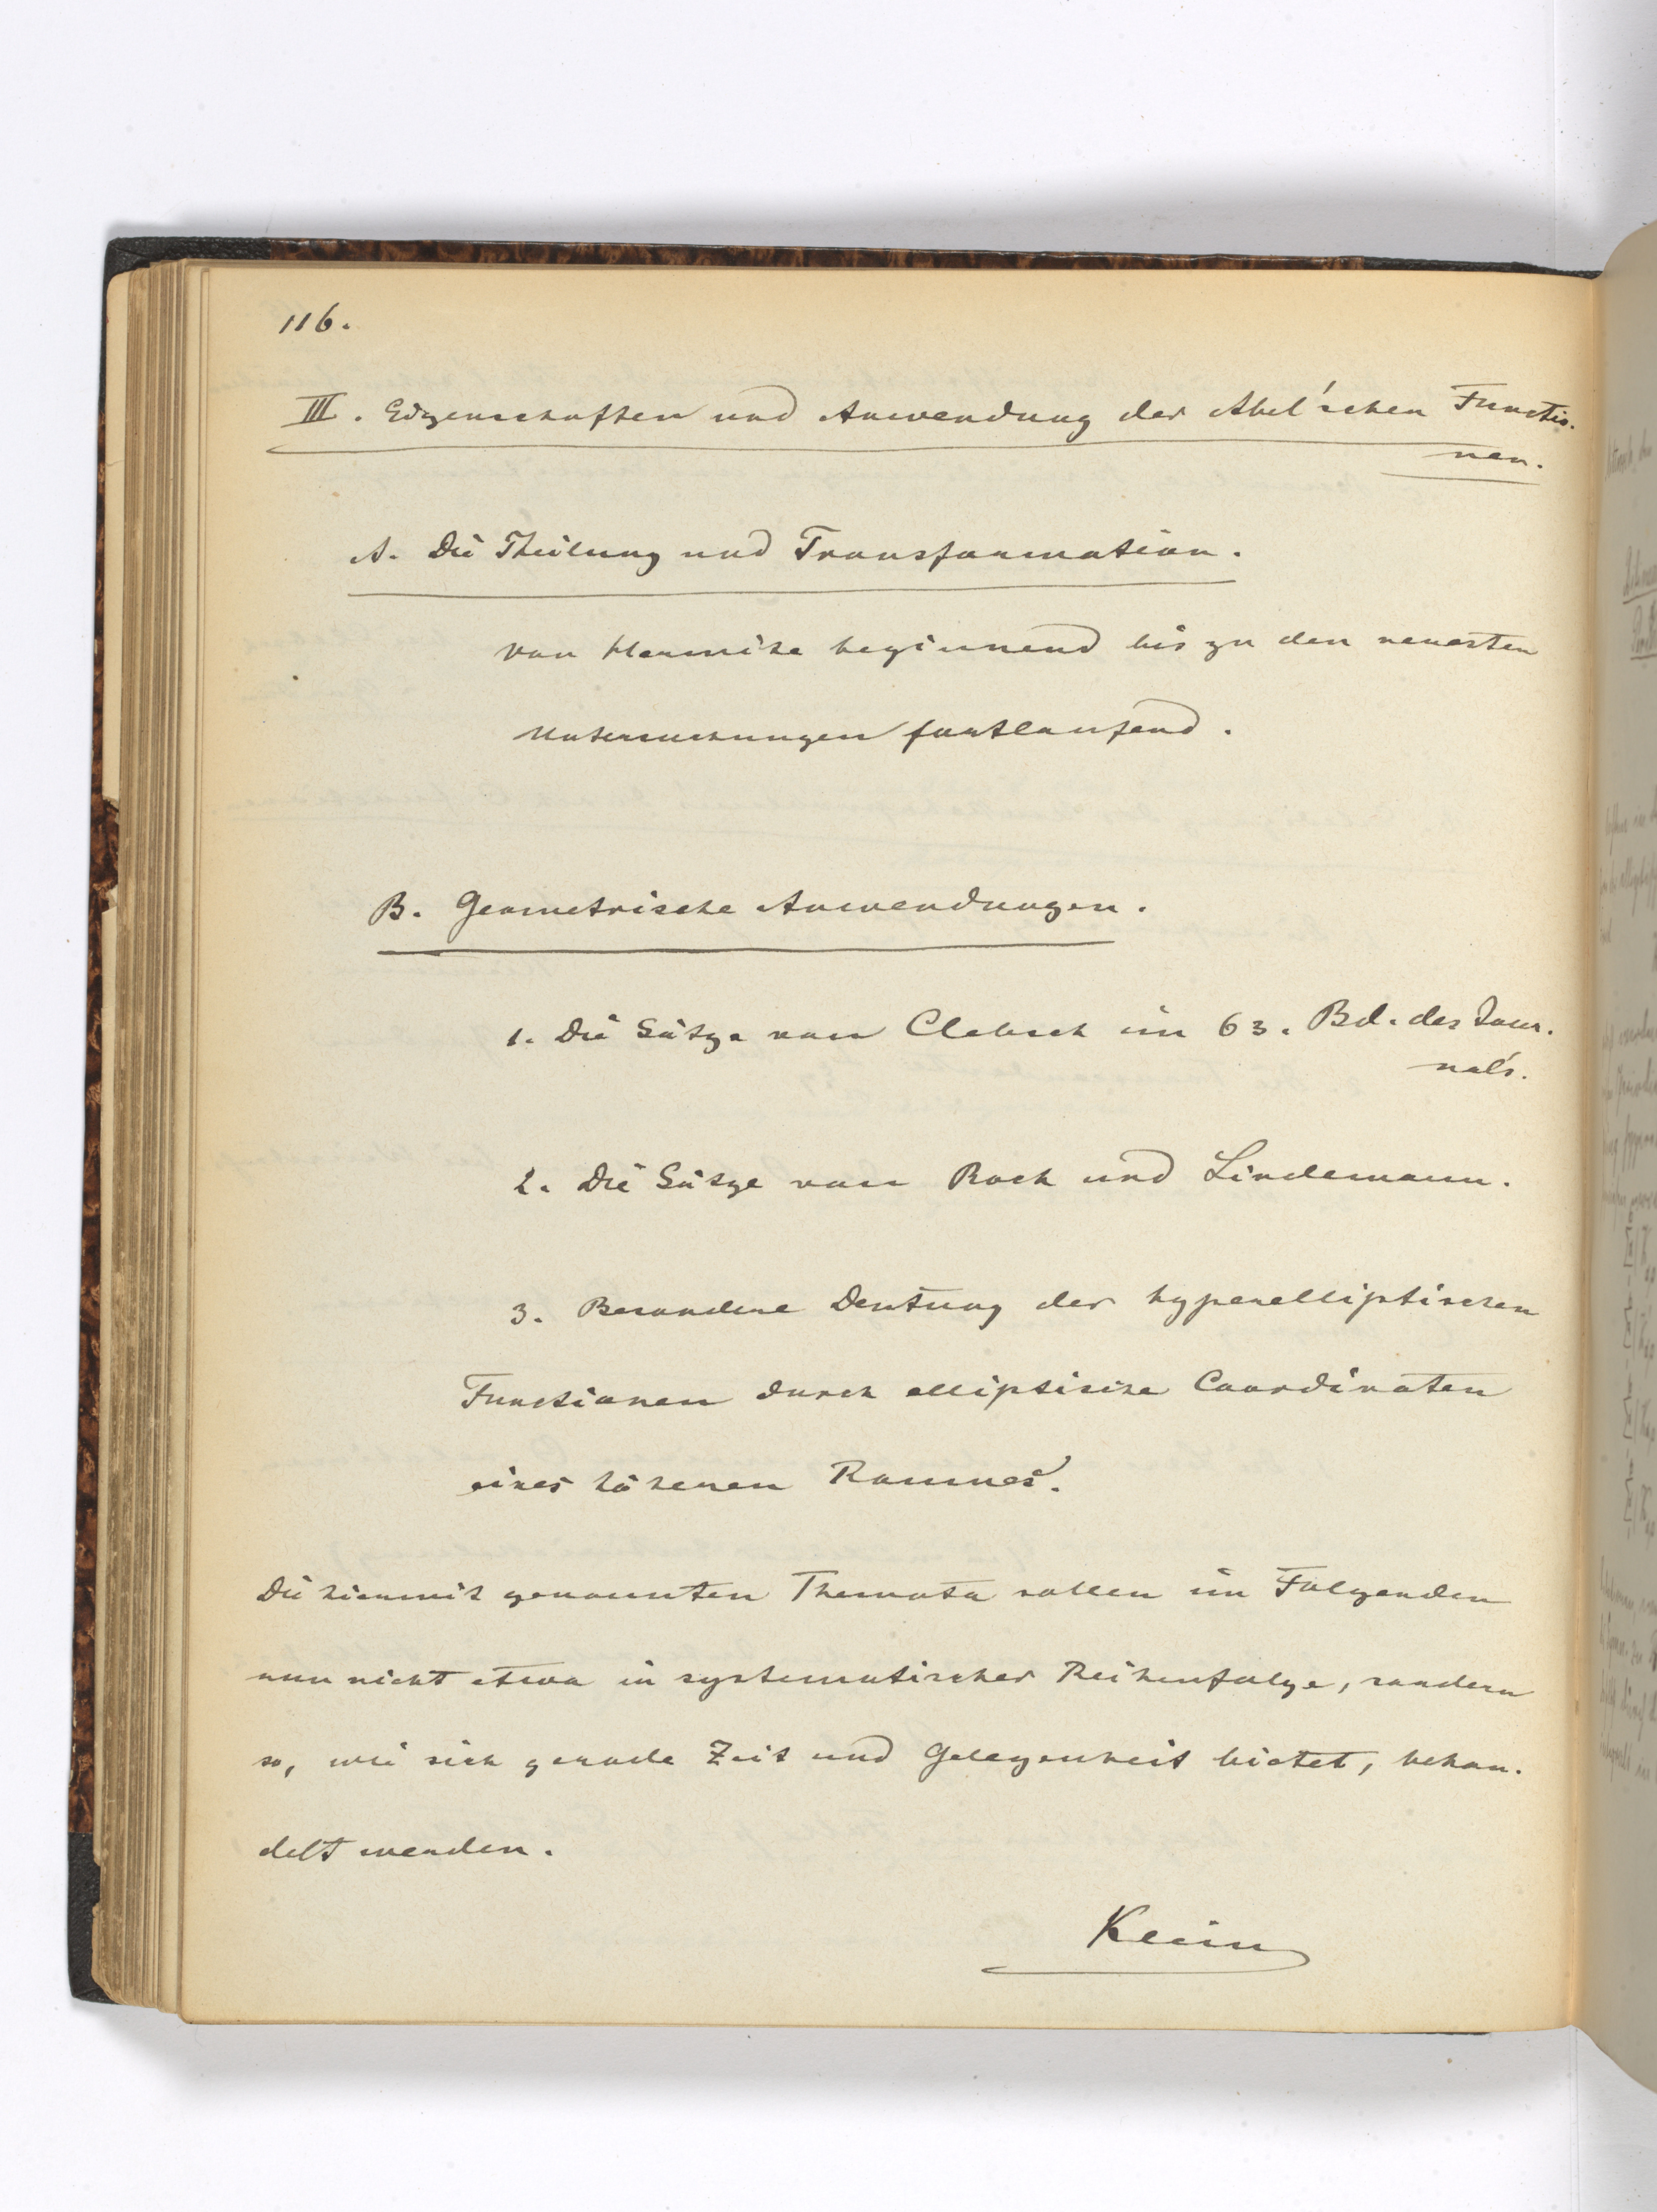 116.
III. Eigenschaften und Anwendung der Abel'schen Functio-
nen.
A. Die Theilung und Transformation.
von Hermite beginnend bis zu den neuesten
Untersuchungen fortlaufend.
B. Geometrische Anwendungen.
1. Die Sätze von Clebsch im 63. Bd. des Jour-
nals.
2. Die Sätze von Roch und Lindemann.
3. Besondere Deutung der hyperelliptischen
Functionen durch elliptische Coordinaten
eines höheren Raumes.
Die hiermit genannten Themata sollen im Folgenden
nun nicht etwa in systematischer Reihenfolge, sondern
so, wie sich gerade Zeit und Gelegenheit bietet, behan-
delt werden.
Klein